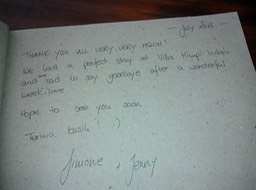 THANK YOU ALL VERY, VERY MUCH!
We had a perfect stay at Villa
and are sad to say goodbye after a wonderful
week here.
Hope to see you soon
Terima kasih! :)
Simone + Jenny